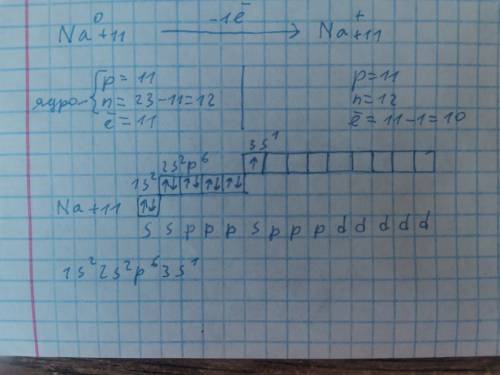 Na⁰+11 -1ē → Na⁺+11
ядро { p = 11
n = 23-11=12
ē = 11
p=11
n=12
ē = 11-1=10
3s¹
2s²p⁶
1s² ↑↓ ↑↓ ↑↓ ↑↓ ↑
Na+11 ↑↓
s s p p p s p p p d d d d d
1s²2s²p⁶3s¹